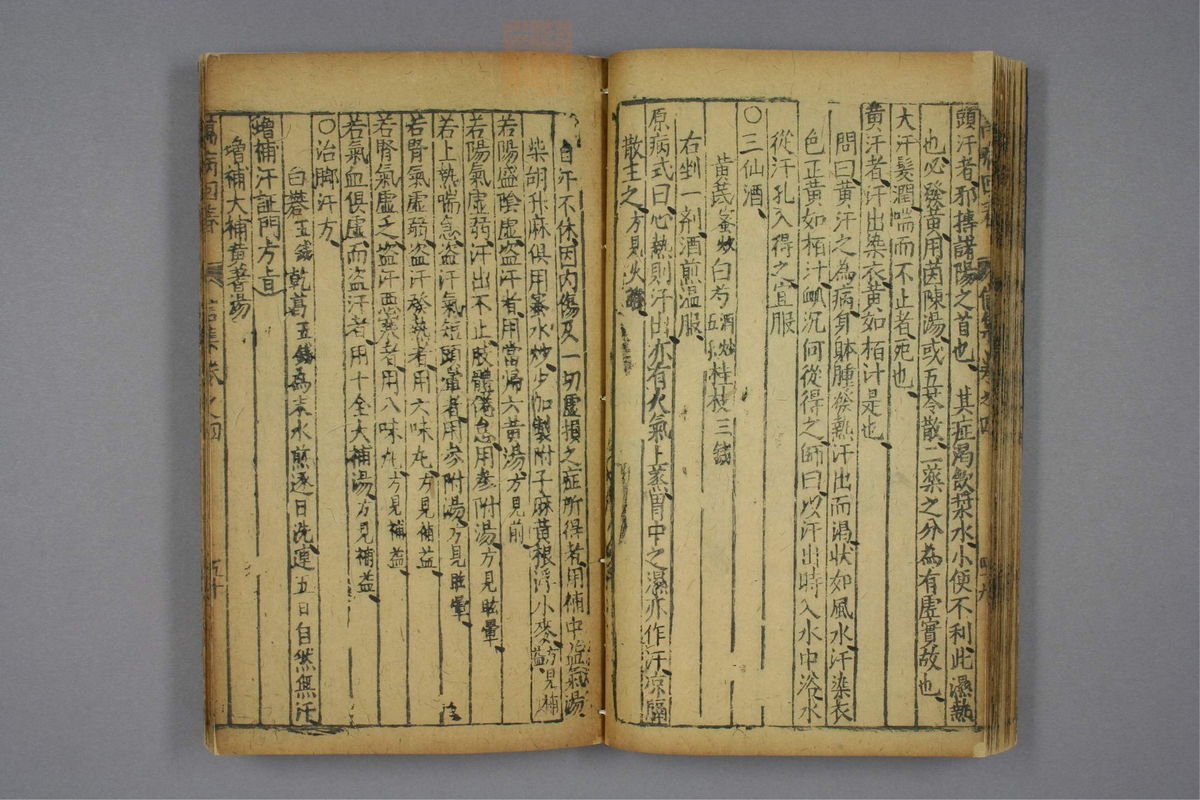 頭汗者邪搏諸陽之首也其症渴飲漿水小便不利此濕熱
也必發黃用茵陳湯或五苓散二藥之分為有虛實故也
大汗髮潤喘而不止者死也
黄汗者汗出染衣黄如栢汁是也
問曰黄汗之為病身躰腫發熱汗出而渴狀如風水汗染衣
色正黄如栢汁脉沉何從得之師曰以汗出時入水中浴水
從汗孔入得之宜服
〇三仙酒
黄芪蜜炒白芍酒炒五桂枝三錢
右剉一劑酒煎温服
原病式曰心熱則汗出亦有火氣上蒸胃中之濕亦作汗凉膈
散主之方見火
自汗不休因内傷及一切虛損之症所得者用補中益氣湯
柴胡升麻俱用蜜水炒少加製附子麻黄根浮小麥方見補益
若陽盛陰虛盜汗者用當帰六黄湯方見前
若陽氣虛弱汗出不止肢體倦怠用參附湯方見眩暈
若上熱喘急盜汗氣短頭暈者用參附湯方見眩暈
若腎氣虛弱盜汗發熱者用六味丸方見補益
若腎氣虛乏盜汗惡寒者用八味丸方見補益
若氣血俱虛而盜汗者用十全大補湯方見補益
〇治脚汗方
白礬五錢乾葛五錢為末水煎逐日洗連五日自然無汗
增補汗証門方旨
增補大補黄蓍湯
萬病回春 四